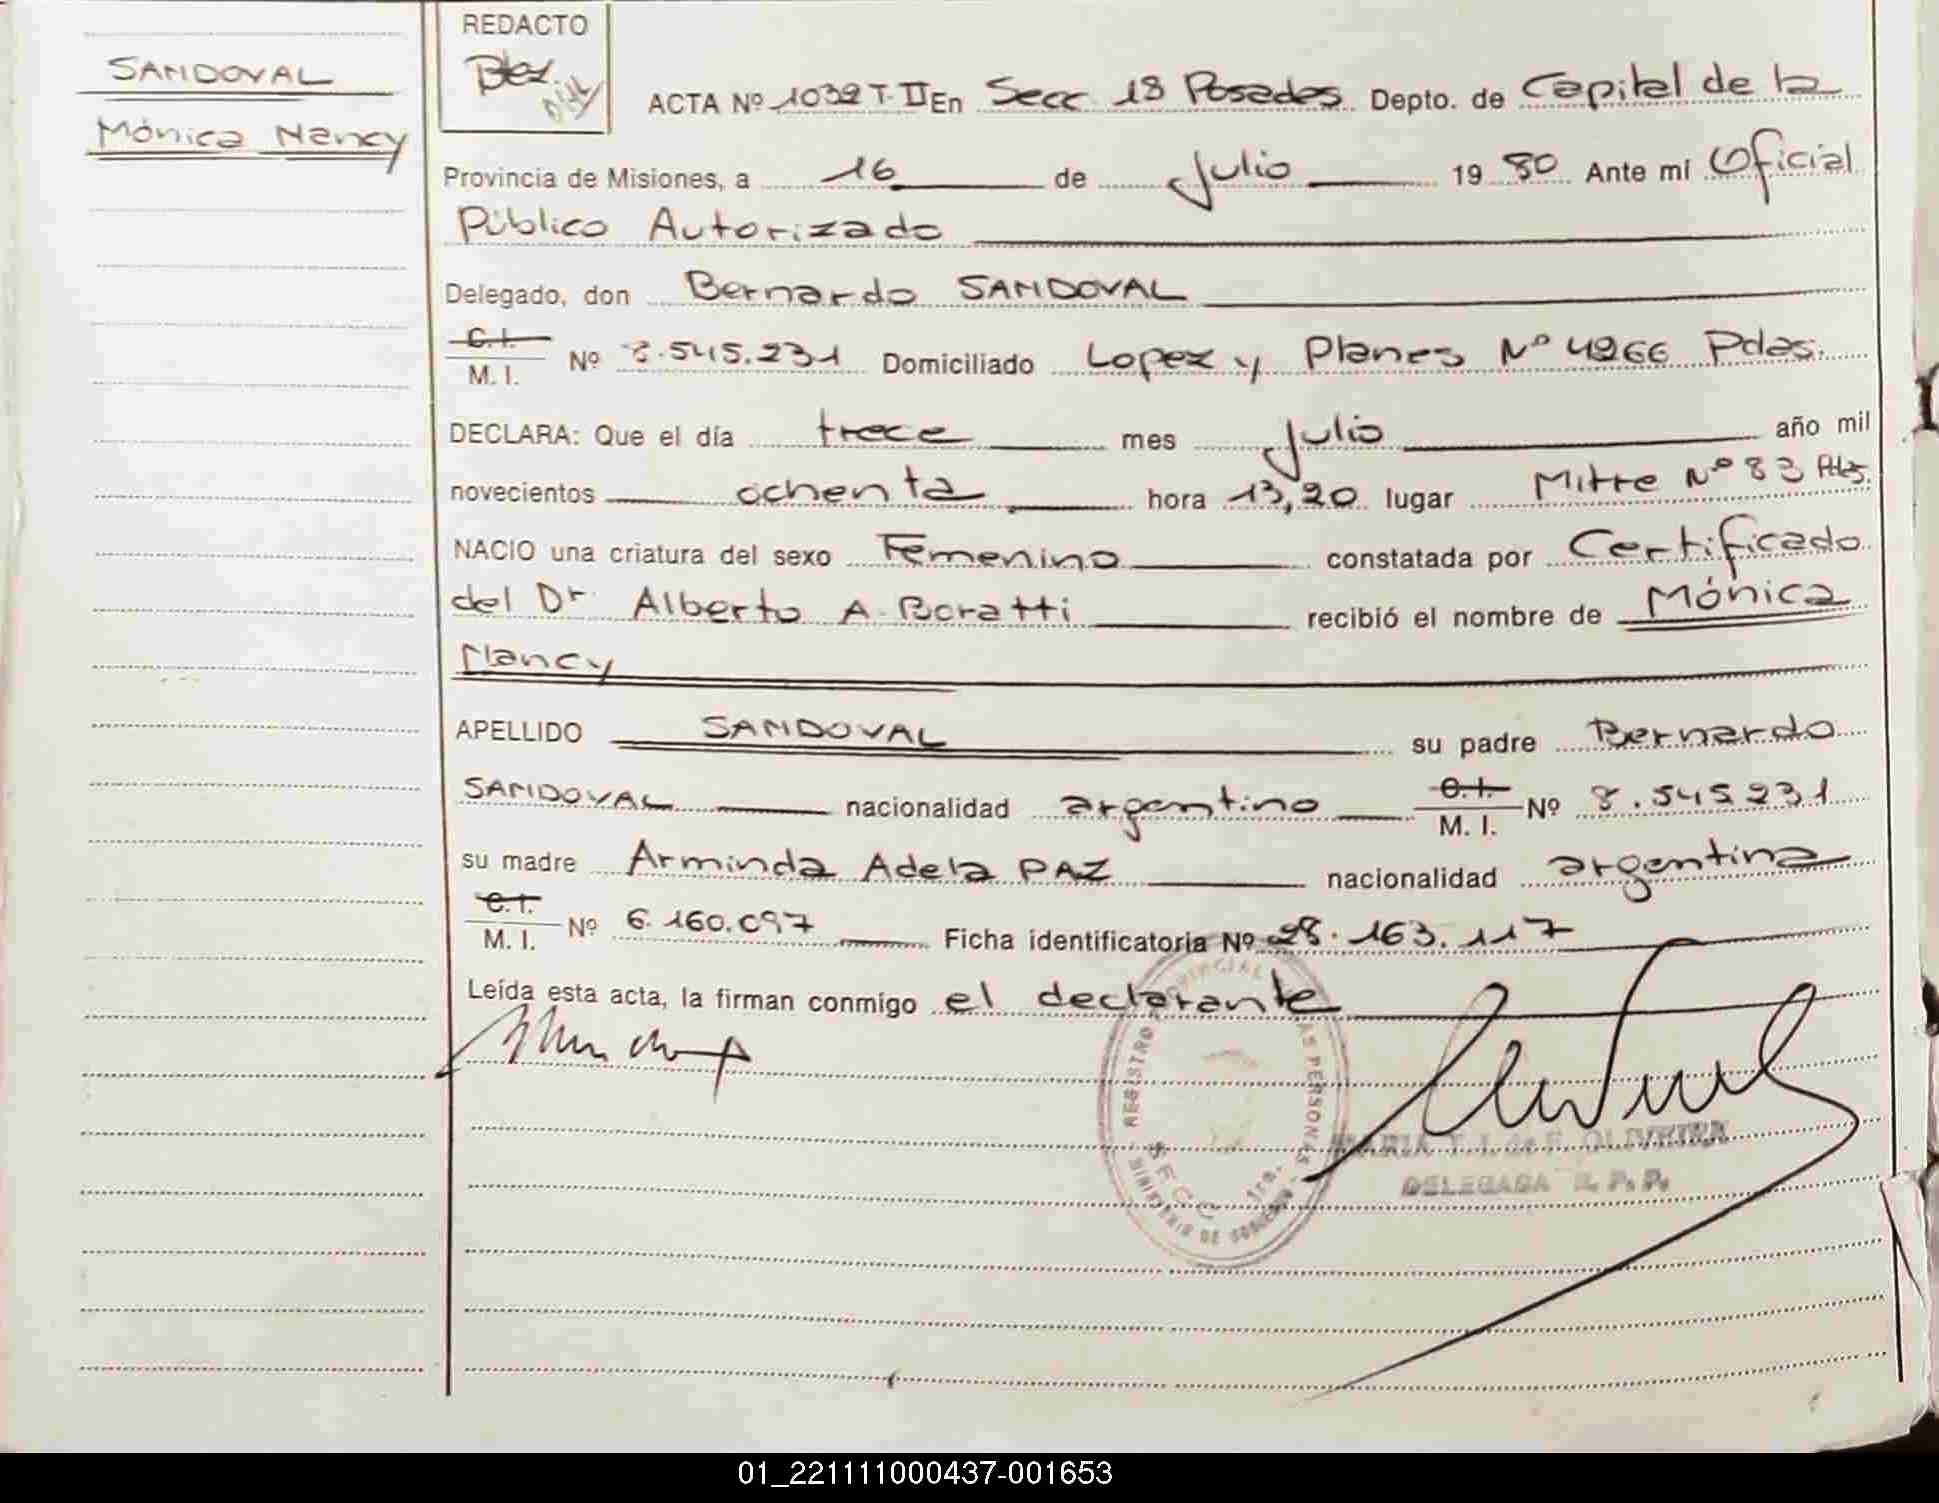 SANDOVAL
Mónica Nancy
REDACTO
ACTA Nº 1039 T. II En Secc 1ª Posadas Depto. de Capital de la
Provincia de Misiones, a 16 de Julio 19 80 Ante mi Oficial
Público Autorizado
Delegado, don Bernardo SANDOVAL
C.I.
M. I. Nº 8.545.231 Domiciliado Lopez y Planes Nº 4266 Pdas.
DECLARA: Que el día trece mes Julio año mil
novecientos ochenta hora 13,20 lugar Mitre Nº 83 Pdas.
NACIO una criatura del sexo Femenino constatada por Certificado
del Dr. Alberto A. Boratti recibió el nombre de Mónica
Nancy
APELLIDO SANDOVAL su padre Bernardo
SANDOVAL nacionalidad argentino C.I.
M. I. Nº 8.545231
su madre Arminda Adela PAZ nacionalidad argentina
C.I.
M. I. Nº 6.160.097 Ficha identificatoria Nº 28.163.117
Leída esta acta, la firman conmigo el declarante
REGISTRO PROVINCIAL DE LAS PERSONAS
SECC. 1ra.
MINISTERIO DE GOBIERNO
MARIA T. J. de F. OLIVEIRA
DELEGADA R. P. P.
01_221111000437-001653